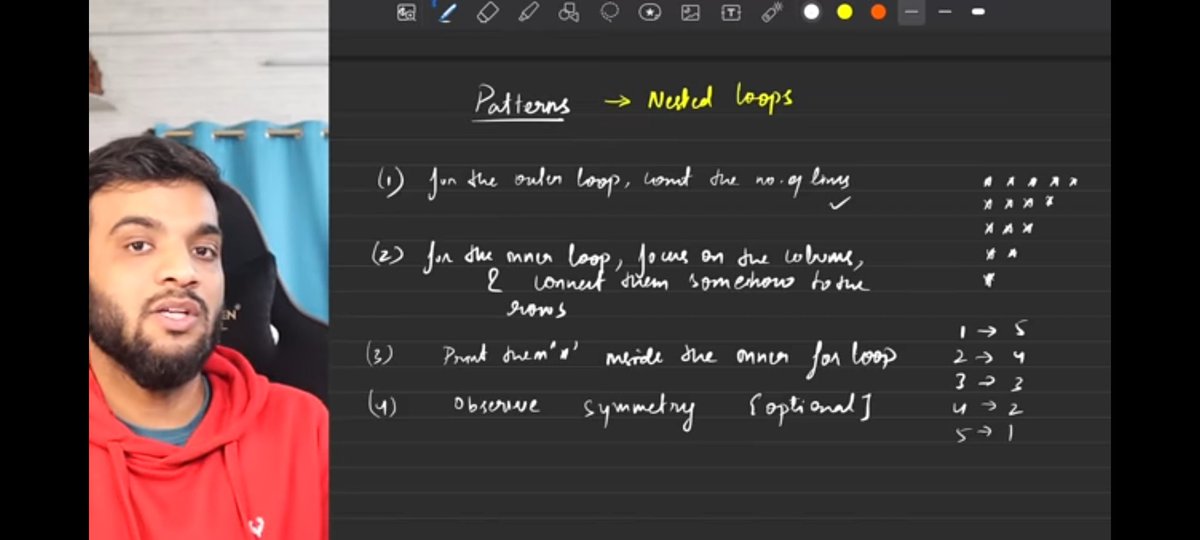 Patterns → Nested loops
(1) for the outer loop, count the no. of lines
(2) for the inner loop, focus on the columns,
& connect them somehow to the
rows
(3) Print them '*' inside the inner for loop
(4) Observe symmetry [optional]
* * * * *
* * * *
* * *
* *
*
1 → 5
2 → 4
3 → 3
4 → 2
5 → 1